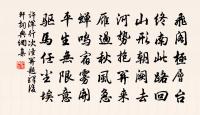 飛閣極層台
終南此路回
山形朝闕去
河勢抱關來
雁過秋風急
蟬鳴宿霧開
平生無限意
驅馬任塵埃
許渾行次潼關題驛後
軒詞典網集